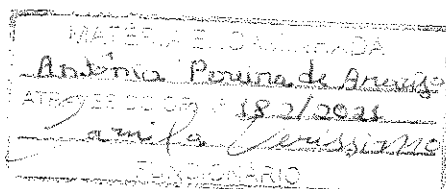 MATÉRIA ENCAMINHADA
Antônia Pereira de Araujo
ATRAVÉS DO OF. Nº 182/2021
Camila Verissimo
FUNCIONÁRIO